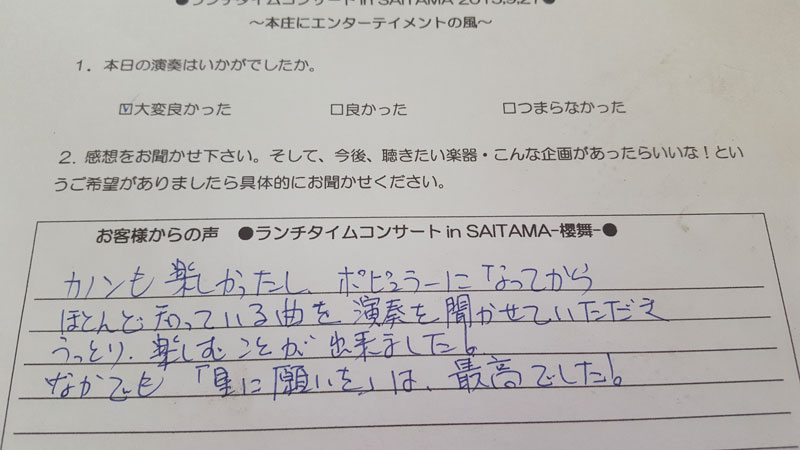 ●ランチタイムコンサート in SAITAMA 2015.9.21●
～本庄にエンターテイメントの風～
1．本日の演奏はいかがでしたか。
☑大変良かった □良かった □つまらなかった
2. 感想をお聞かせ下さい。そして、今後、聴きたい楽器・こんな企画があったらいいな！とい
うご希望がありましたら具体的にお聞かせください。
お客様からの声 ●ランチタイムコンサート in SAITAMA-櫻舞-●
カノンも楽しかったし、ポピュラーになってから
ほとんど知っている曲を演奏を聞かせていただき
うっとり、楽しむことが出来ました！
なかでも「星に願いを」は、最高でした！